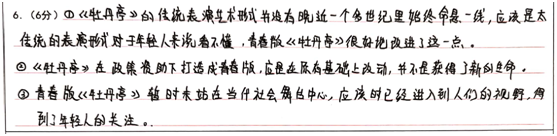 6.(6分) ①《牡丹亭》的传统表演艺术形式并没有晚近一个多世纪里始终命悬一线,应该是太
传统的表演形式对于年轻人来说看不懂,青春版《牡丹亭》很好地改进了这一点。
②《牡丹亭》在政策资助下打造成青春版,应是在原有基础上改动,并不是获得了新的生命。
③青春版《牡丹亭》暂时未站在当代社会舞台中心,应该时已经进入到人们的视野,得
到了年轻人的关注。